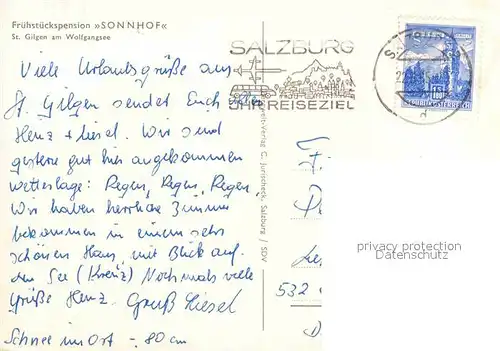 Frühstückspension »SONNHOF«
St. Gilgen am Wolfgangsee
Viele Urlaubsgrüße aus
St. Gilgen sendet Euch allen
Henz + Liesel. Wir sind
gestern gut hier angekommen
Wetterlage: Regen, Regen, Regen.
Wir haben herrliche Zimmer
bekommen in einem sehr
schönen Haus, mit Blick auf
den See (Kreuz) Nochmals viele
Grüße Henz. Gruß Liesel
Schnee im Ort - 80 cm
SALZBURG
IHR REISEZIEL
Verlag C. Jurischek, Salzburg / SDV
REPUBLIK ÖSTERREICH
532
privacy protection
Datenschutz